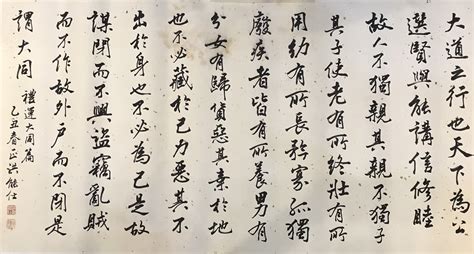 大道之行也天下為公
選賢與能講信修睦
故人不獨親其親不獨子
其子使老有所終壯有所
用幼有所長矜寡孤獨
廢疾者皆有所養男有
分女有歸貨惡其棄於地
也不必藏於己力惡其不
出於身也不必為己是故
謀閉而不興盜竊亂賊
而不作故外戶而不閉是
謂大同 禮運大同篇
乙丑春正洪能仕